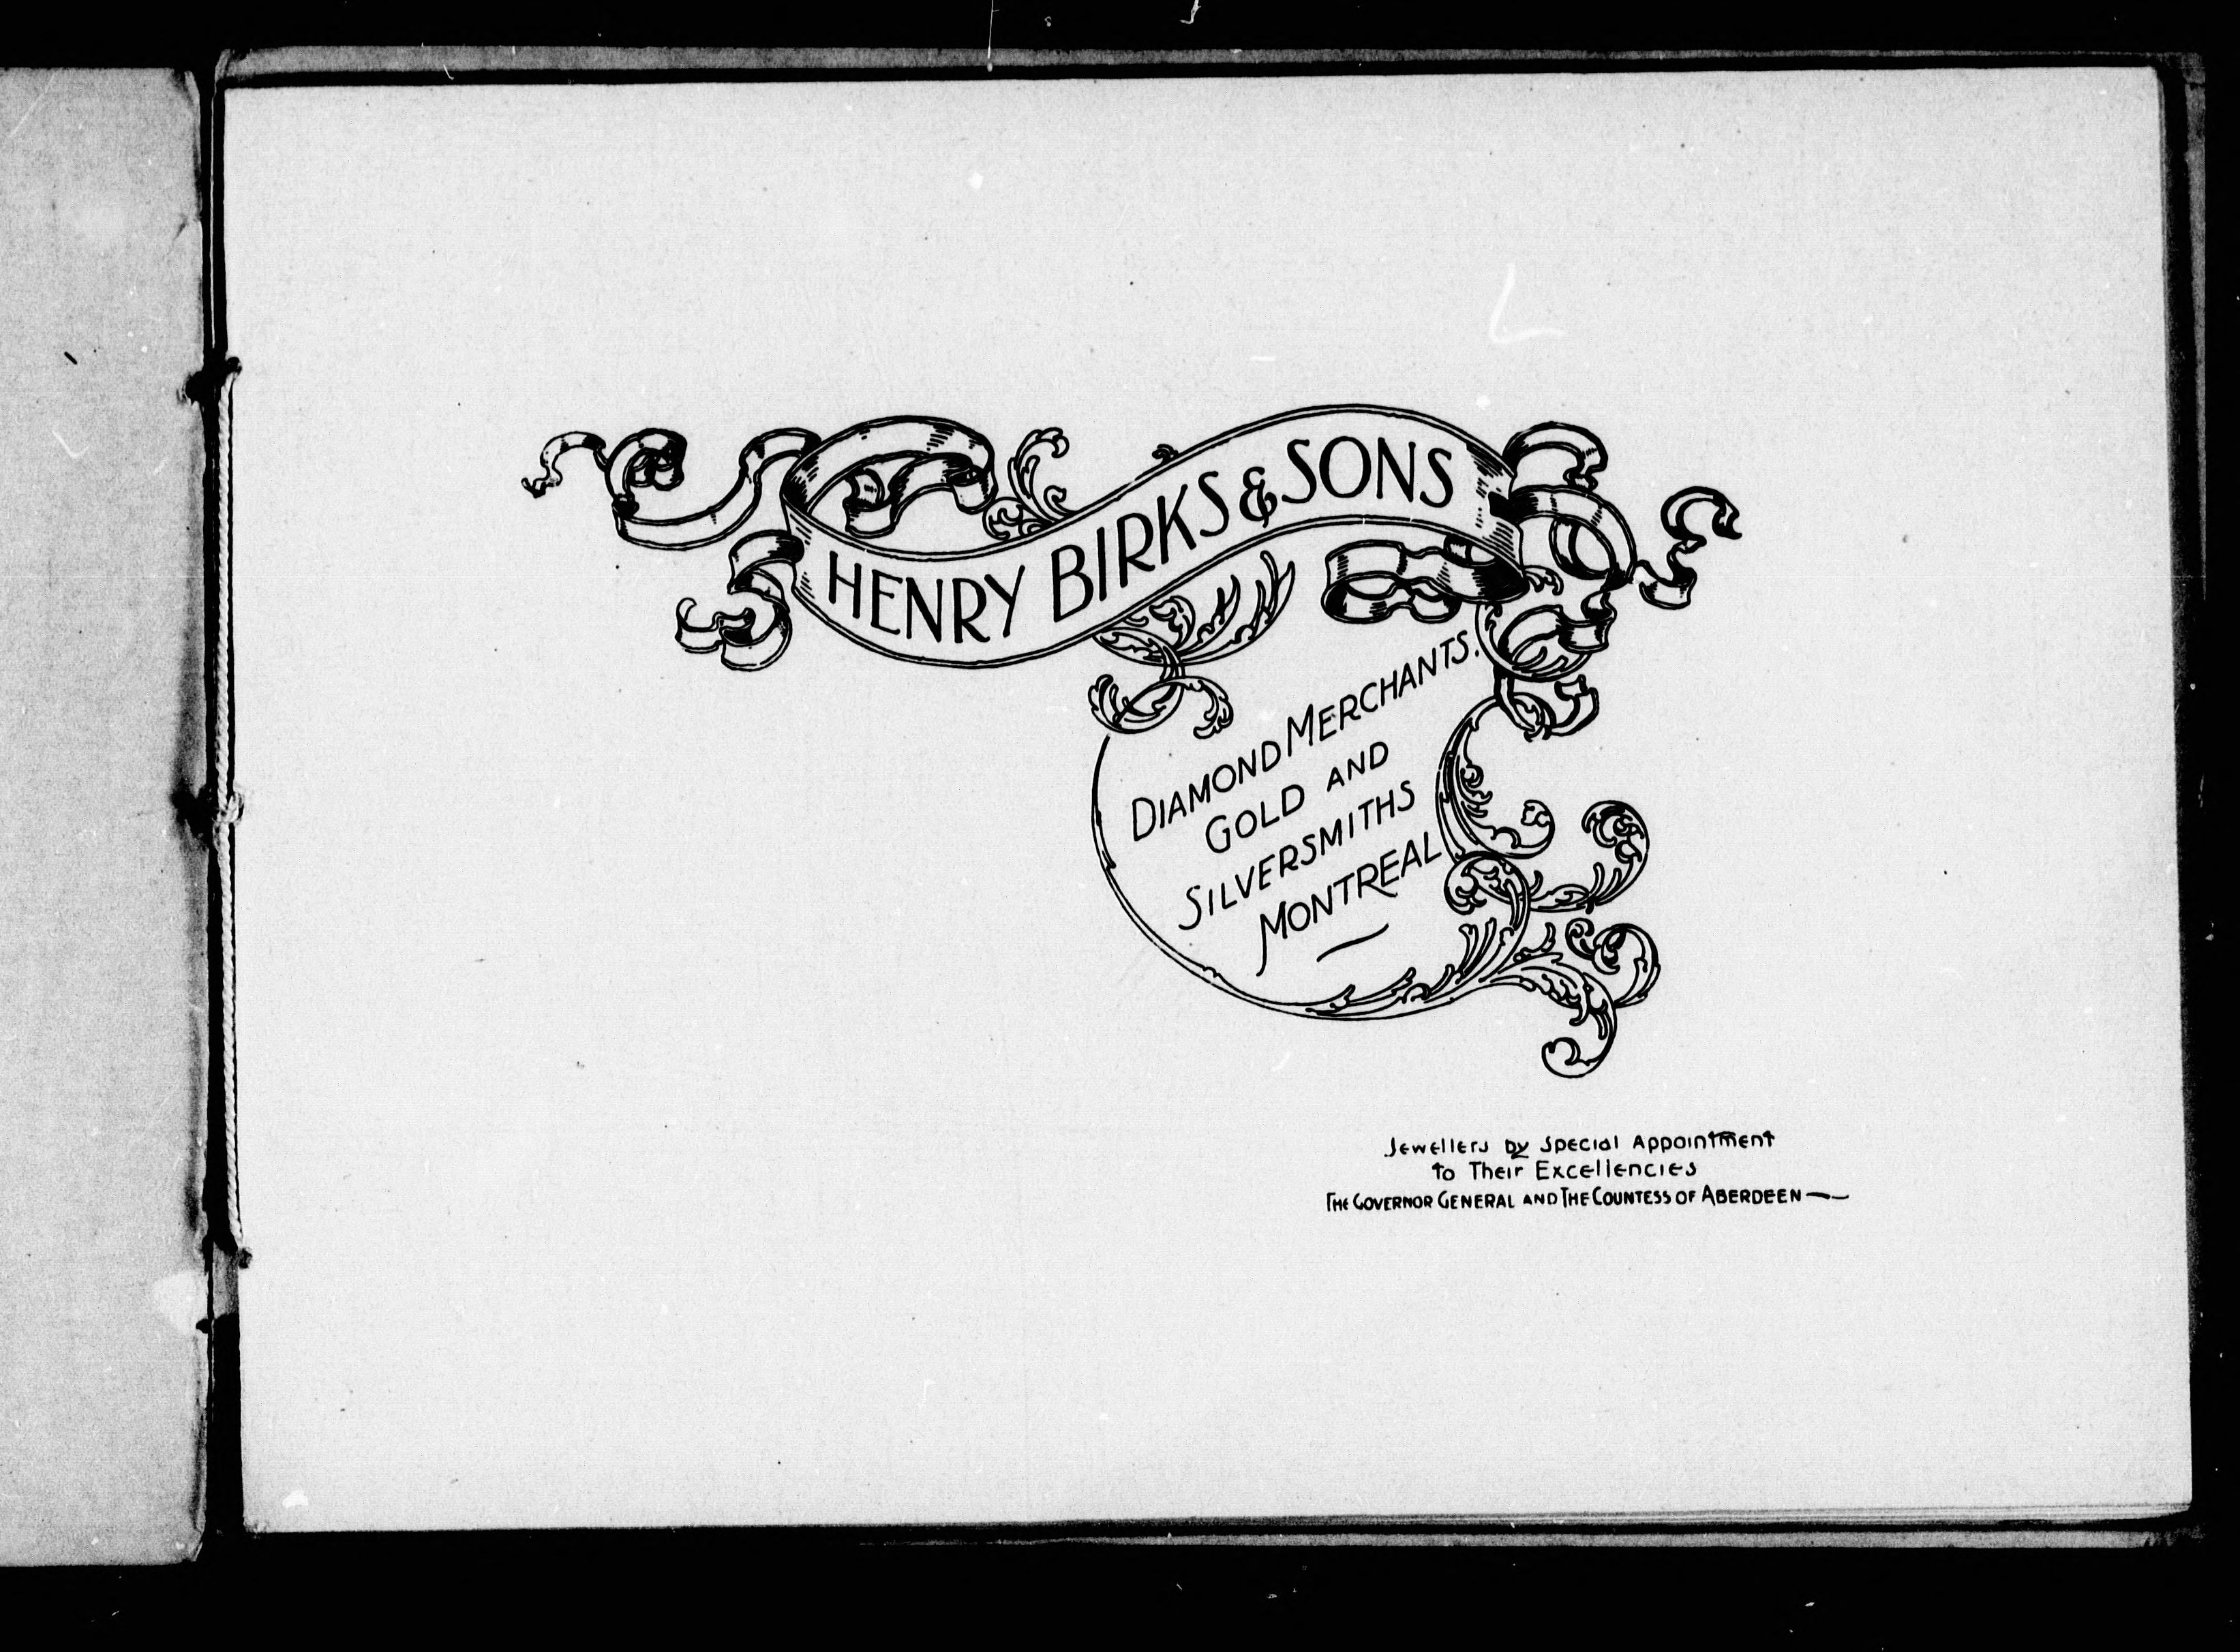 HENRY BIRKS & SONS
DIAMOND MERCHANTS.
GOLD AND
SILVERSMITHS
MONTREAL
Jewellers by Special Appointment
to Their Excellencies
THE GOVERNOR GENERAL AND THE COUNTESS OF ABERDEEN